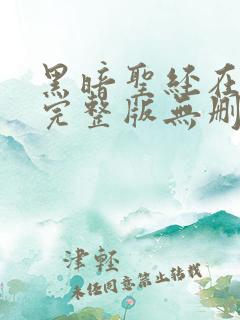 黑暗聖經在
完整版無刪
津輕
未經同意禁止轉載